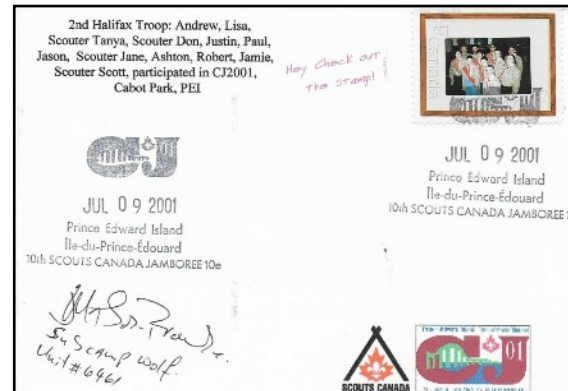 2nd Halifax Troop: Andrew, Lisa,
Scouter Tanya, Scouter Don, Justin, Paul,
Jason, Scouter Jane, Ashton, Robert, Jamie,
Scouter Scott, participated in CJ2001,
Cabot Park, PEI
Hey Check out
the stamp!
CJ
JUL 09 2001
Prince Edward Island
Île-du-Prince-Édouard
10th SCOUTS CANADA JAMBOREE 10e
JUL 09 2001
Prince Edward Island
Île-du-Prince-Édouard
10th SCOUTS CANADA JAMBOREE 1
Unit #6461
SCOUTS CANADA
CJ 01